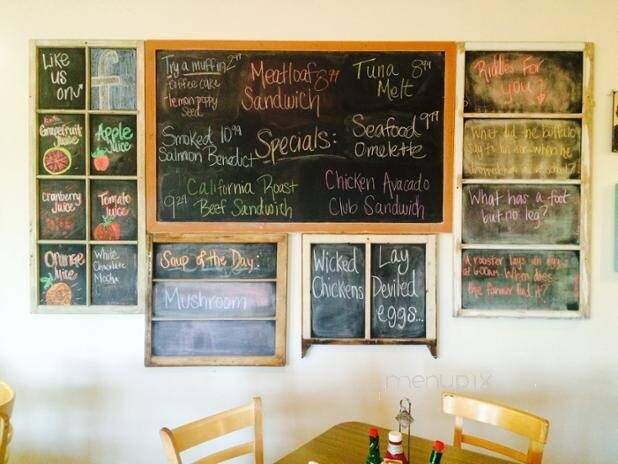 Like
us
on
f
Grapefruit
Juice
Apple
Juice
Cranberry
Juice
Tomato
Juice
Orange
Juice
White
Chocolate
Mocha
Try a muffin 2
Coffee cake
lemon poppy
Seed
Meatloaf 8.99
Sandwich
Tuna 8.99
Melt
Smoked 10.99
Salmon Benedict
Specials:
Seafood 9.99
Omelette
California Roast
9.29 Beef Sandwich
Chicken Avacado
Club Sandwich
Soup of the Day:
Mushroom
Wicked
Chickens
Lay
Deviled
eggs...
Riddles For
you?
What did the buffalo
say to his son when he
What has a foot
but no leg?
A rooster lays an egg
at 6:00am. When does
the farmer find it?
menupix